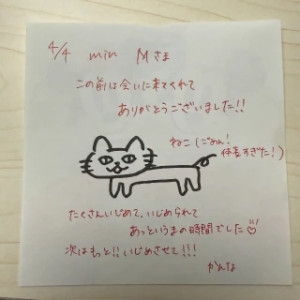 4/4 min Mさま
この前は会いに来てくれて
ありがとうございました!!
ねこ(ごめん!
体長すぎた!)
たくさんいじめて、いじめられて
あっというまの時間でした
次はもっと!!いじめさせて!!!
かんな